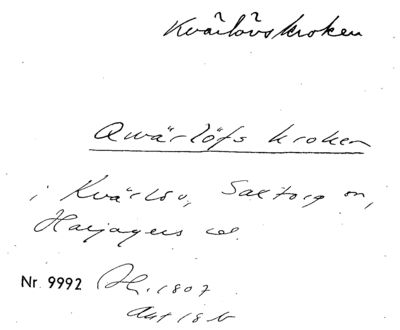 Kvärlövskroken
Qwärlöfs kroken
i Kvärlöv, Saxtorp sn,
Harjagers hd.
Nr 9992 Ah. 1807
Akt 18